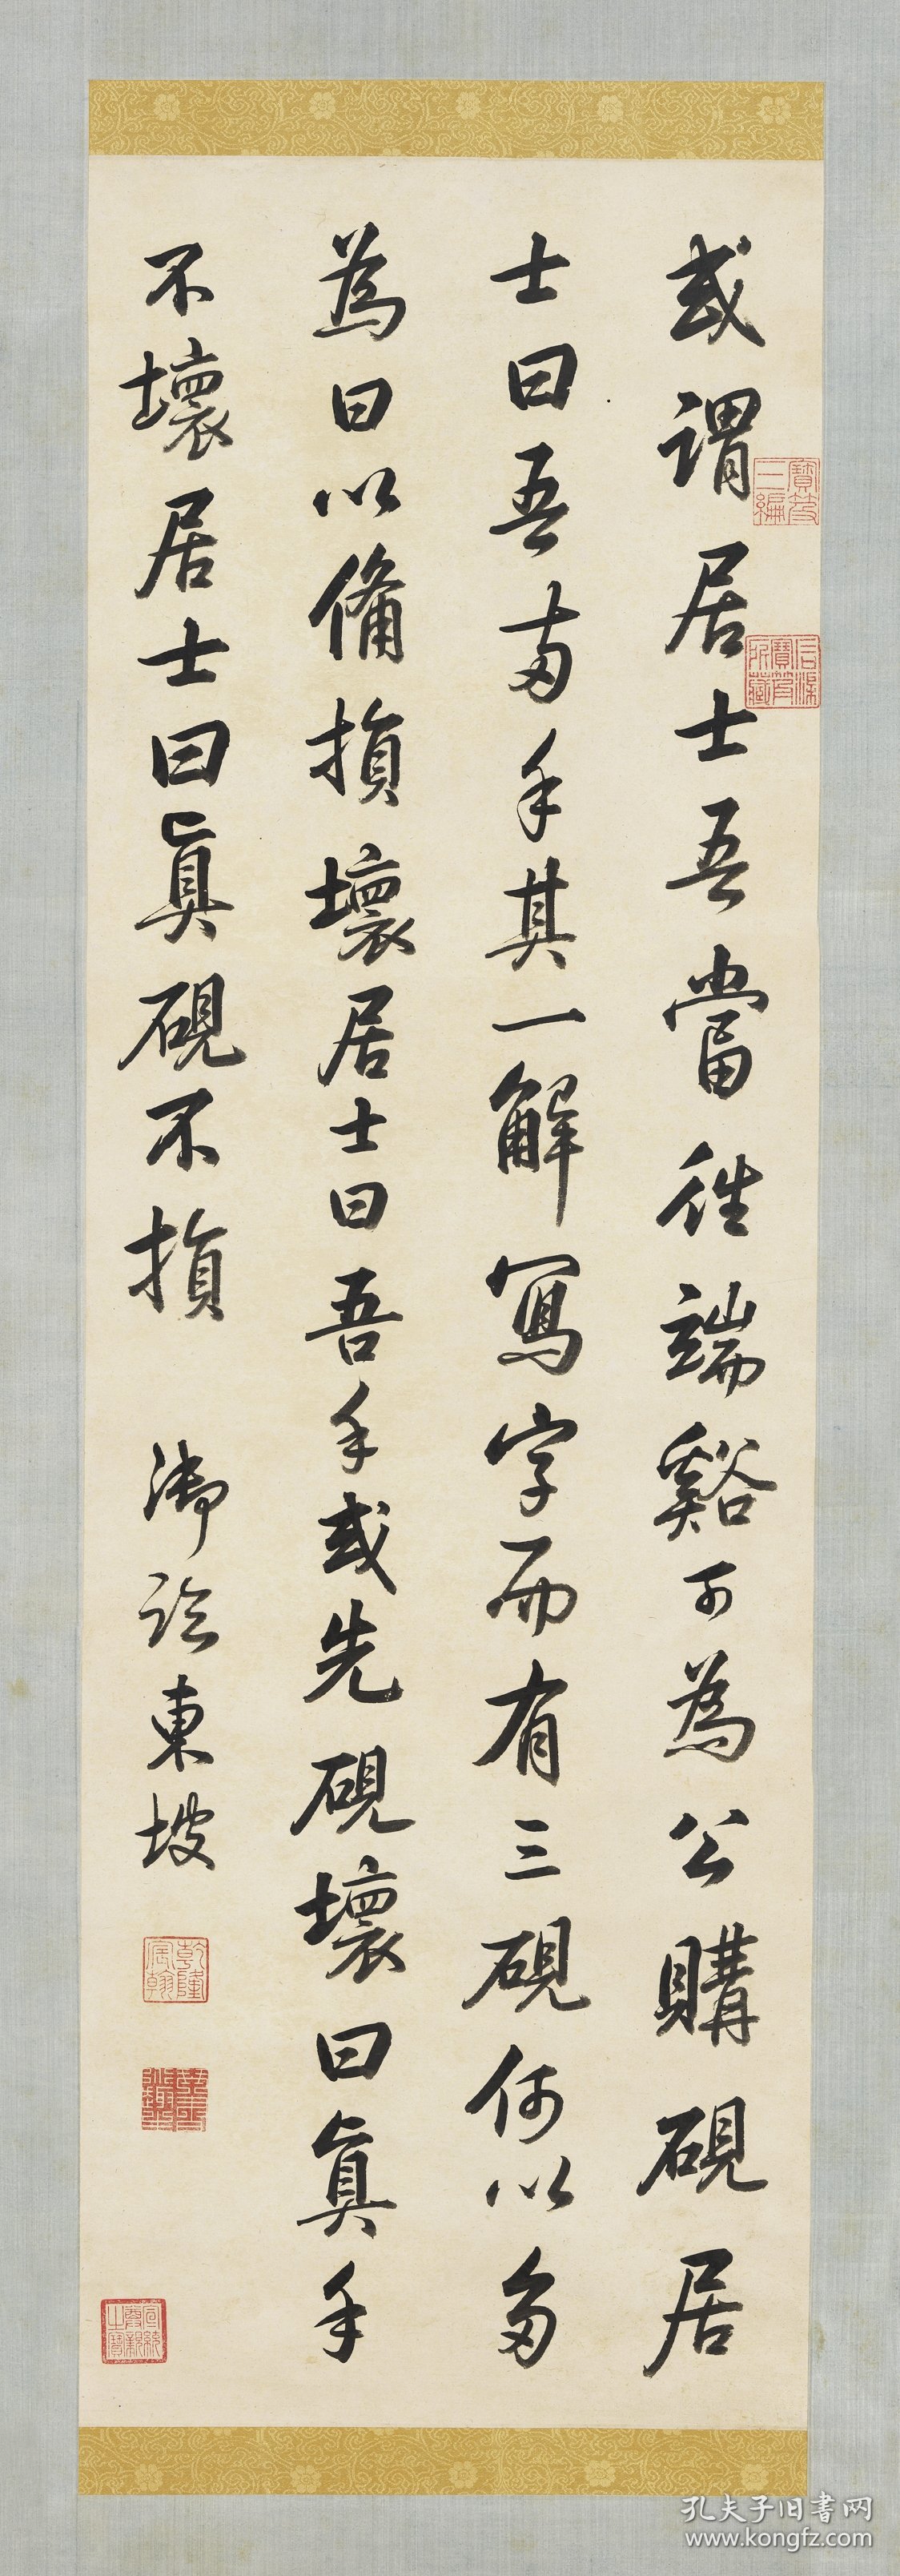 或謂居士吾當往端谿可為公購硯居
士曰吾兩手其一解寫字而有三硯何以多
為曰以備損壞居士曰吾手或先硯壞曰眞手
不壞居士曰眞硯不損 御臨東坡
寶笈三編
石渠寶笈所藏
乾隆宸翰
宣統尊親之寶
孔夫子旧書网
www.kongfz.com